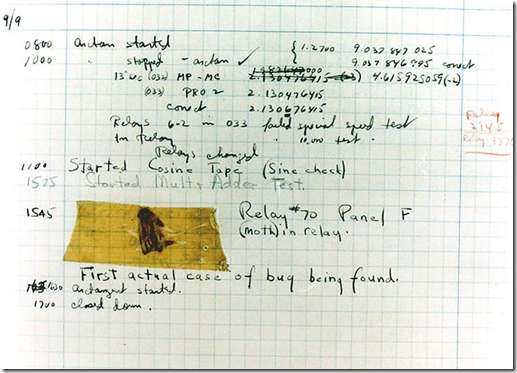 9/9
0800 arctan started { 1.2700 9.037 847 025
1000 " stopped - arctan ✓ 9.037 846 995 correct
13"UC (032) MP - MC 4.615925059(-2)
(033) PRO 2 2.130476415
correct 2.130676415
Relays 6-2 in 033 failed special speed test
In Relay " 10,000 test.
Relays changed
Relay
2145
Relay 3370
1100 Started Cosine Tape (Sine check)
1525 Started Mult + Adder Test.
1545 Relay #70 Panel F
(moth) in relay.
First actual case of bug being found.
1630 arctangent started.
1700 closed down.